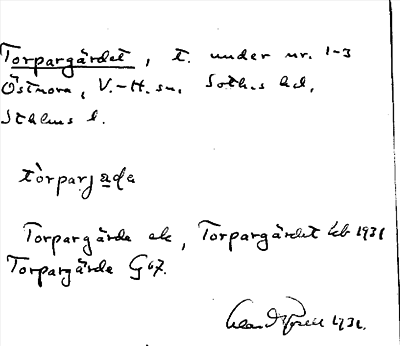 Torpargärdet, t. under nr. 1-3
Östnora, V.-H. sn. Soth.s hd,
Sthlms l.
tòrparjađa
Torpargärde ek, Torpargärdet Jeb 1931
Torpargärda G 67.
1931.